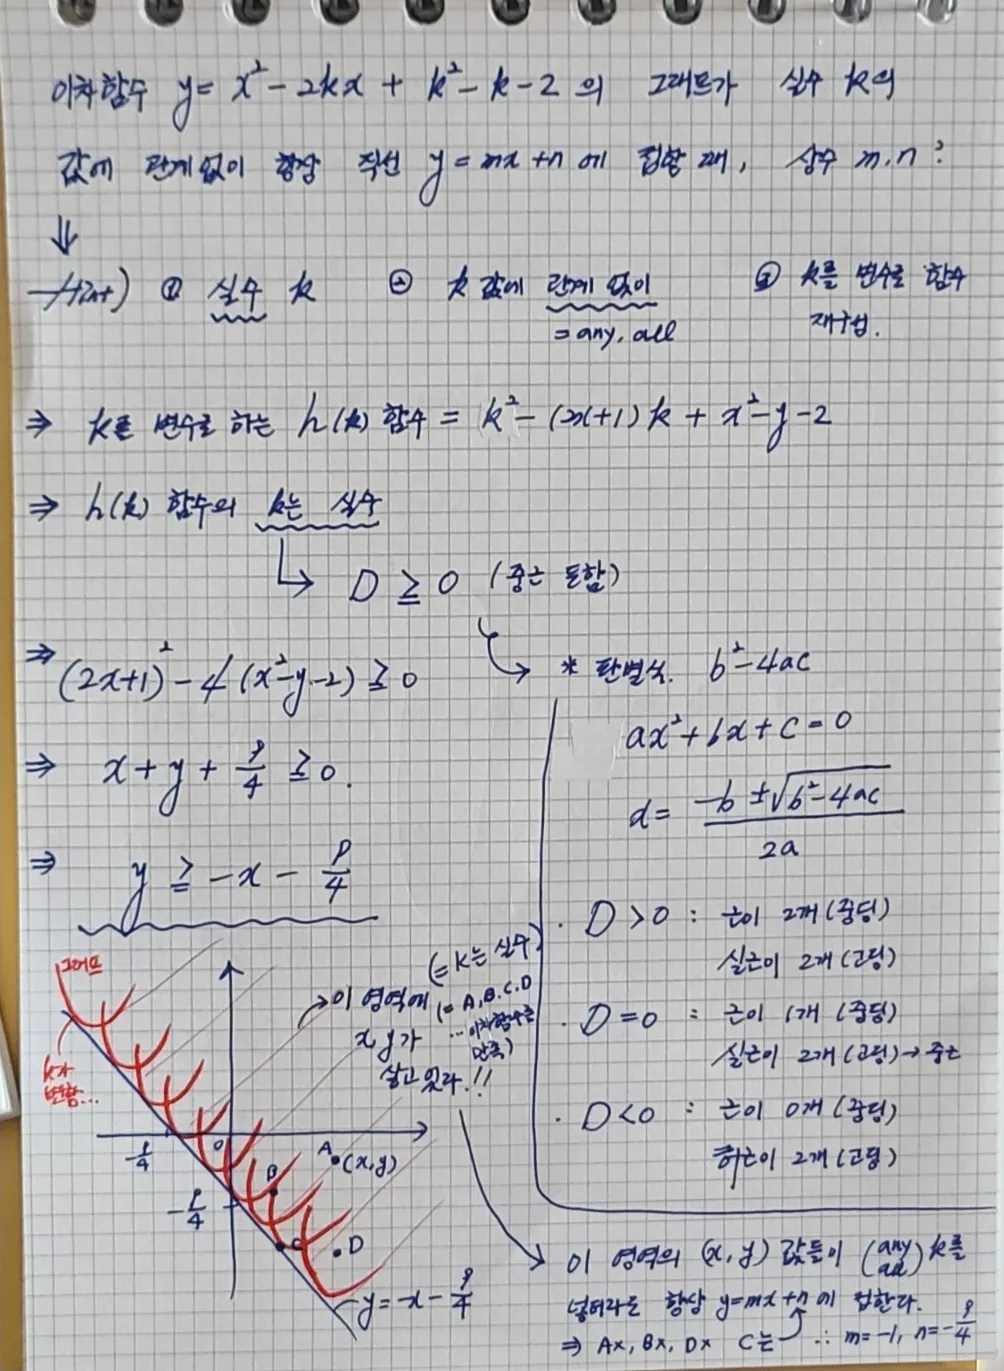 이차함수 y = x² - 2kx + k² - k - 2 의 그래프가 실수 k의
값에 관계없이 항상 직선 y = mx + n 에 접할 때, 상수 m.n ?
⇓
① 실수 k ② k 값에 관계 없이 ③ k를 변수로 함수
= any, all 재구성.
⇒ k를 변수로 하는 h(k) 함수 = k² - (2x+1)k + x² - y - 2
⇒ h(k) 함수의 k는 실수
↳ D ≧ 0 (중근 포함)
⇒ (2x+1)² - 4(x²-y-2) ≧ 0
⇒ x + y + 9/4 ≧ 0.
⇒ y ≧ -x - 9/4
* 판별식. b²-4ac
ax² + bx + c = 0
x = (-b ± √(b²-4ac)) / 2a
· D > 0 : 근이 2개 (중딩)
실근이 2개 (고딩)
· D = 0 : 근이 1개 (중딩)
실근이 2개 (고딩) → 중근
· D < 0 : 근이 0개 (중딩)
허근이 2개 (고딩)
그래프
k가
변함...
(= k는 실수)
→ 이 영역에 (= A, B, C, D
x y가 ... 이차함수를
만족)
살고 있다.!!
-9/4
0
A (x, y)
B
-9/4
C
D
y = -x - 9/4
이 영역의 (x, y) 값들이 (any all) k를
넣더라도 항상 y=mx+n 에 접한다.
⇒ A×, B×, D× C는 ∴ m = -1, n = -9/4